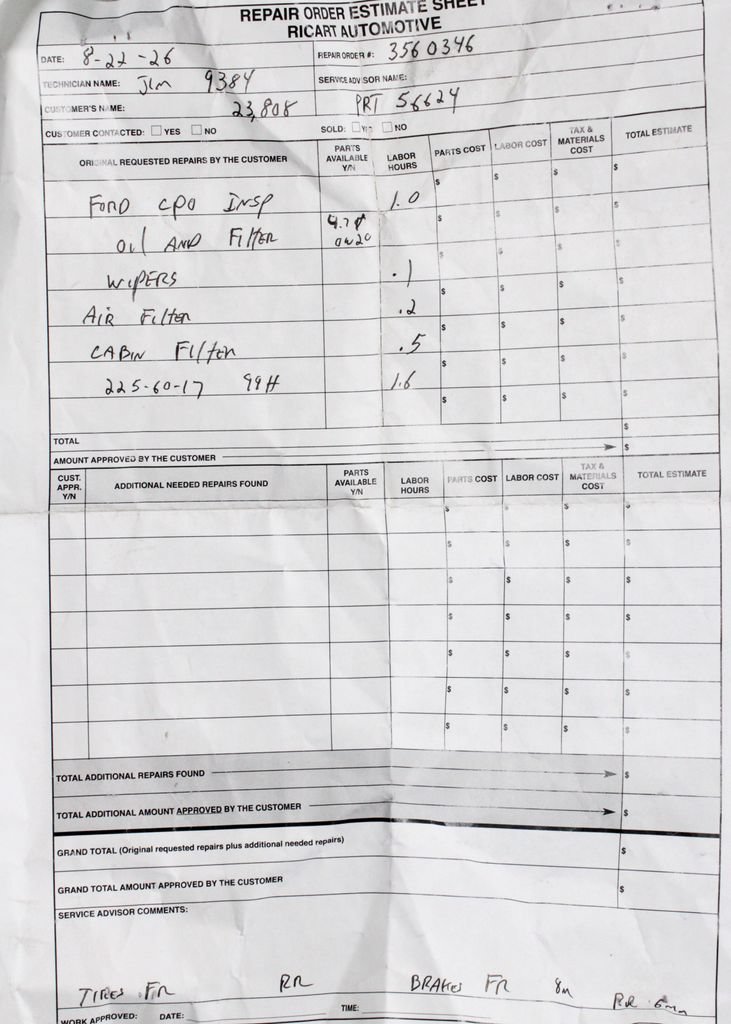 REPAIR ORDER ESTIMATE SHEET
RICART AUTOMOTIVE
DATE: 8-22-26 REPAIR ORDER #: 3560346
TECHNICIAN NAME: Jim 9384 SERVICE ADVISOR NAME:
CUSTOMER'S NAME: 23,808 PRT 56624
CUSTOMER CONTACTED: YES NO SOLD: YES NO
ORIGINAL REQUESTED REPAIRS BY THE CUSTOMER PARTS AVAILABLE Y/N LABOR HOURS PARTS COST LABOR COST TAX & MATERIALS COST TOTAL ESTIMATE
$ $ $ $
FORD CPO INSP 1.0
$ $ $ $
OIL AND FILTER 0W20
$ $ $ $
WIPERS .1
$ $ $ $
AIR FILTER .2
$ $ $ $
CABIN FILTER .5
$ $ $ $
225-60-17 99H 1.6
$ $ $ $
TOTAL $
AMOUNT APPROVED BY THE CUSTOMER $
CUST. APPR. Y/N ADDITIONAL NEEDED REPAIRS FOUND PARTS AVAILABLE Y/N LABOR HOURS PARTS COST LABOR COST TAX & MATERIALS COST TOTAL ESTIMATE
$ $ $ $
$ $ $ $
$ $ $ $
$ $ $ $
$ $ $ $
$ $ $ $
$ $ $ $
TOTAL ADDITIONAL REPAIRS FOUND $
TOTAL ADDITIONAL AMOUNT APPROVED BY THE CUSTOMER $
GRAND TOTAL (Original requested repairs plus additional needed repairs) $
GRAND TOTAL AMOUNT APPROVED BY THE CUSTOMER $
SERVICE ADVISOR COMMENTS:
TIRES FR RR BRAKES FR 8m RR 6mm
WORK APPROVED: DATE: TIME: